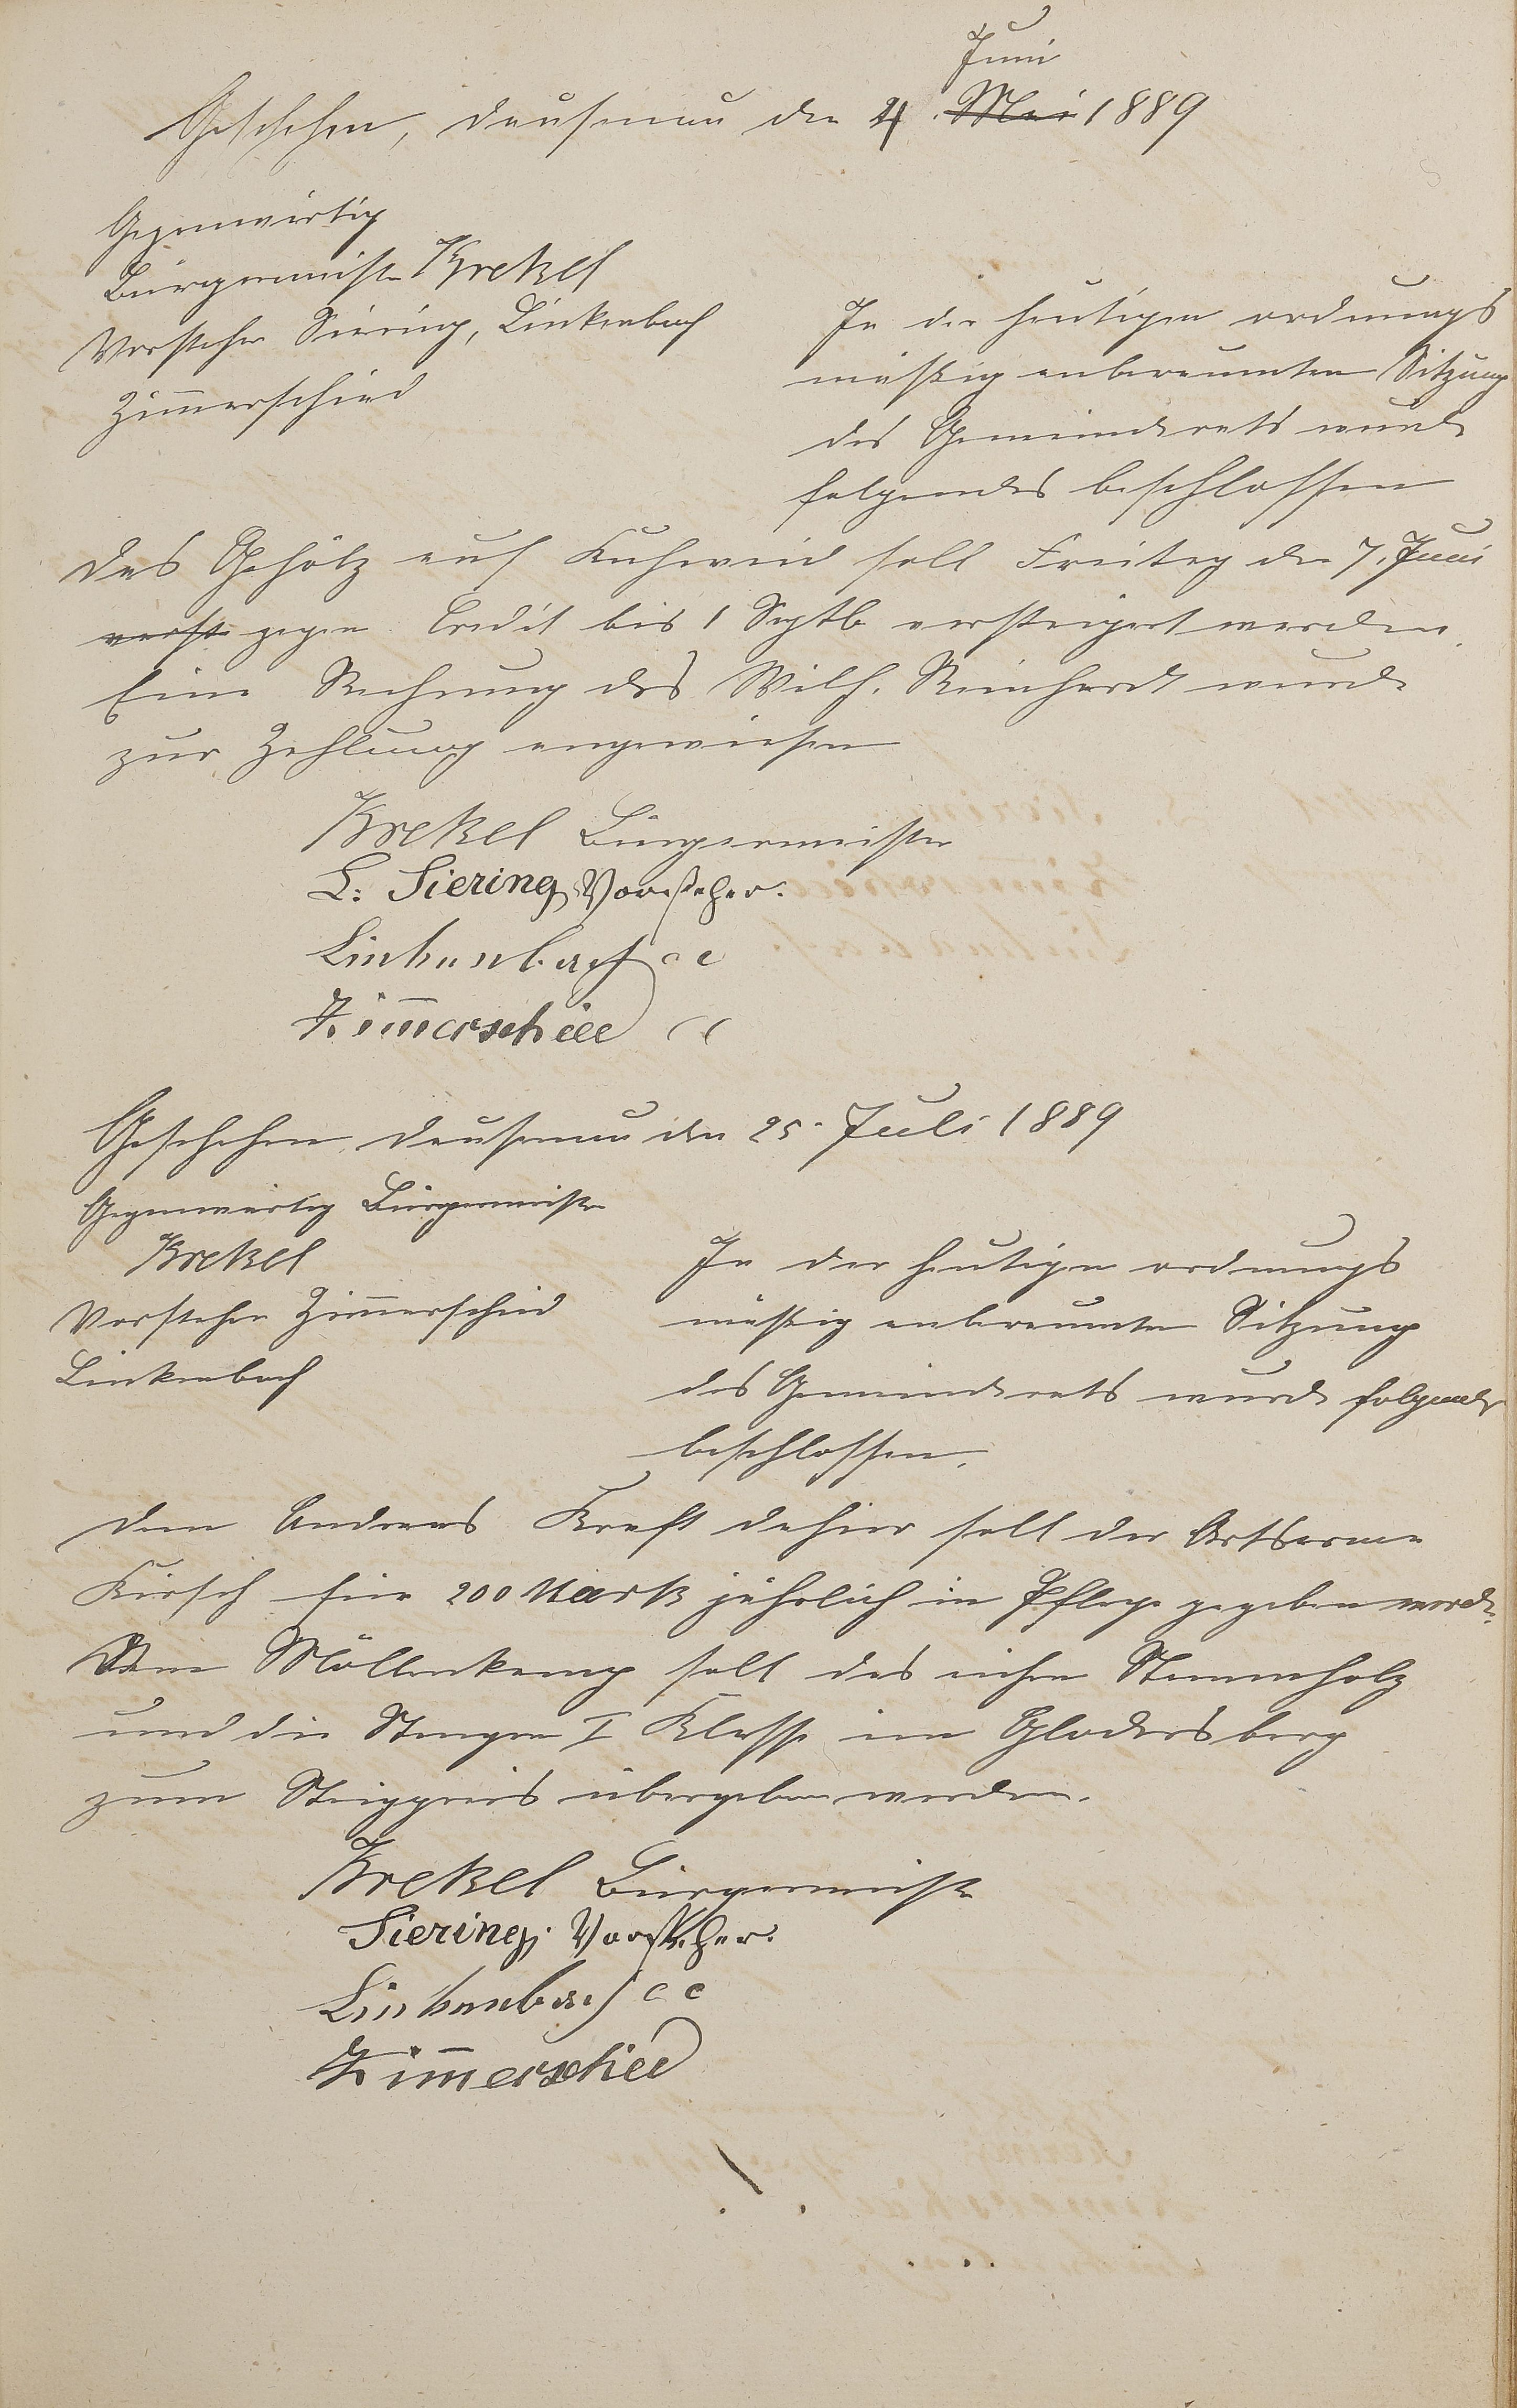 Juni
Geschehen, Dausenau den 4. Mai 1889
Gegenwärtig
Bürgermeister Krekel
Vorsteher Siering, Linkenbach
Zimerschied
In der heutigen ordnungs
mäßig anberaumten Sitzung
des Gemeinderats wurde
folgendes beschlossen
Das Gehölz auf Kuhweid soll Freitag den 7. Juni
verst gegen Credit bis 1 Septb versteigert werden.
Eine Rechnung des Wilh. Reinhardt wurde
zur Zahlung angewiesen
Krekel Bürgermeister
L. Siering, Vorsteher.
Linkenbach "
Zimerschied "
Geschehen, Dausenau den 25. Juli 1889
Gegenwärtig Bürgermeister
Krekel
Vorsteher Zimerschied
Linkenbach
In der heutigen ordnungs
mäßig anberaumten Sitzung
des Gemeinderats wurde folgendes
beschlossen.
Dem Andreas Kraft dahier soll der Ortsarme
Kirsch für 200 Mark jährlich in Pflege gegeben werden.
Dem Möllerkamp soll das eichen Stammholz
und die Stangen I Klasse im
zum Steigpreis übergeben werden.
Krekel Bürgermeister
Siering, Vorsteher.
Linkenbach "
Zimerschied